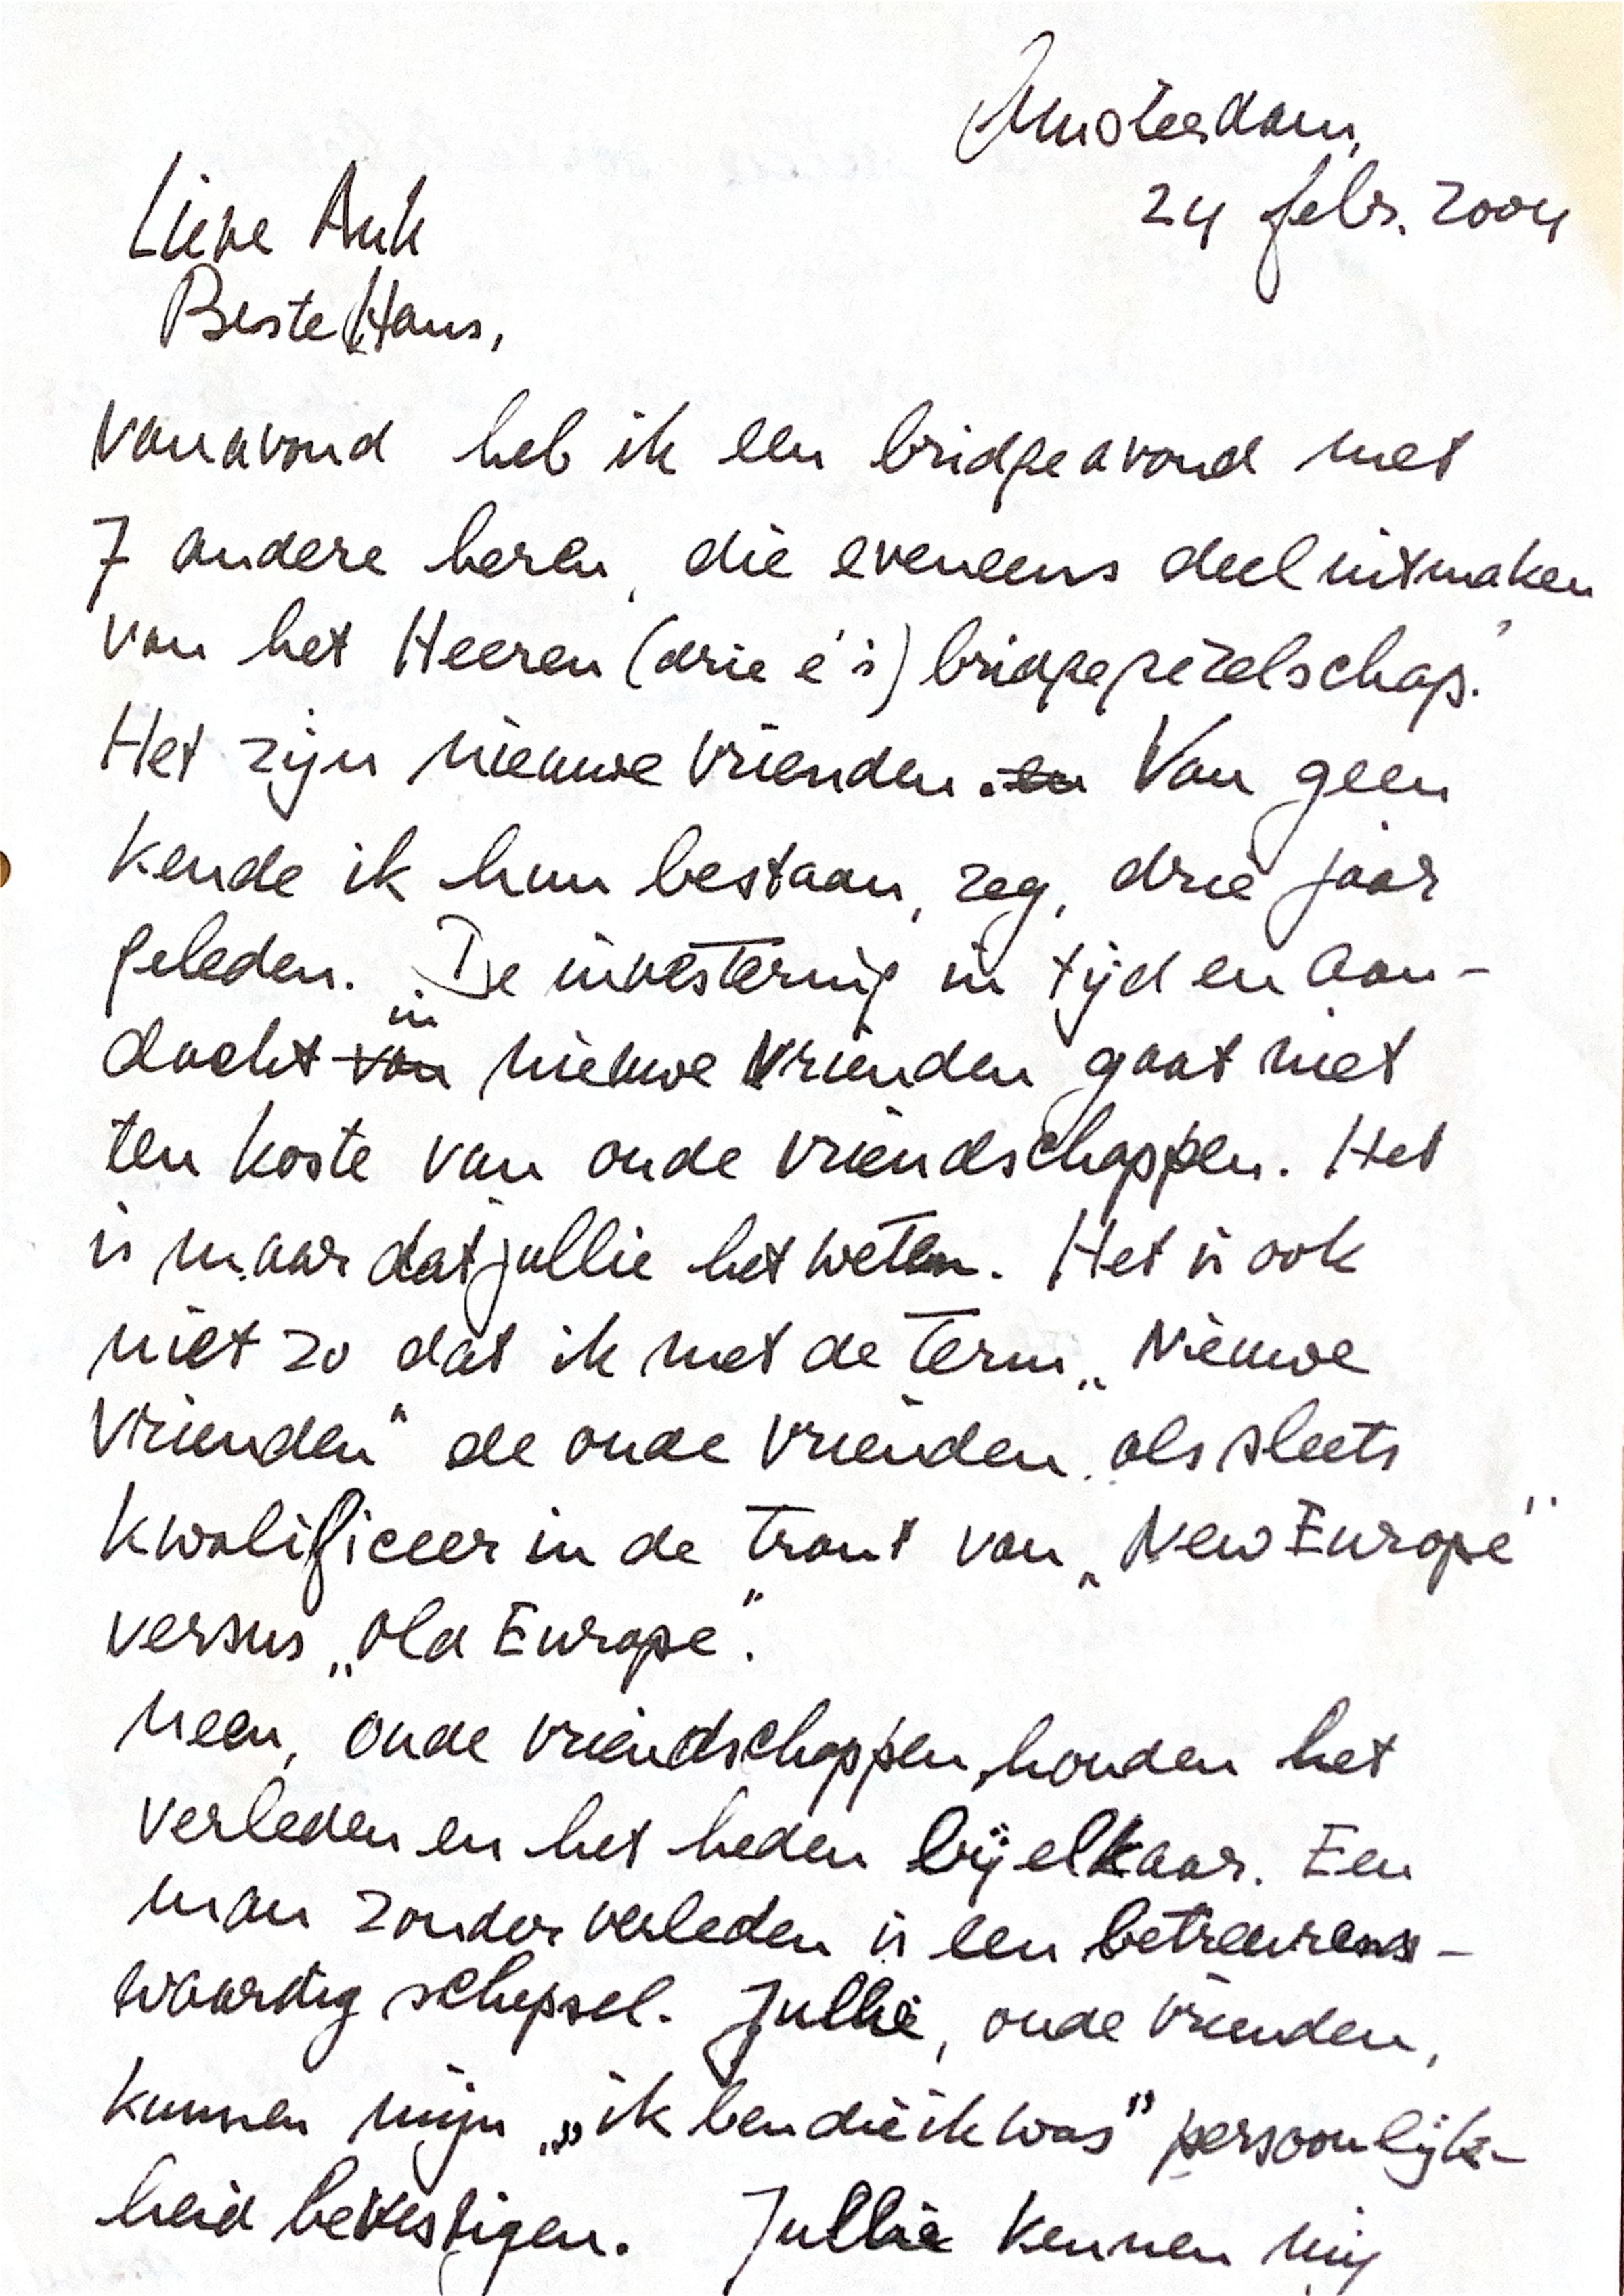 Amsterdam,
24 febr. 2004
Lieve Auk
Beste Hans,
Vanavond heb ik een bridgeavond met
7 andere heren, die eveneens deel uitmaken
van het Heeren (drie e's) bridgegezelschap.
Het zijn nieuwe vrienden. en Van geen
kende ik hun bestaan, zeg, drie jaar
geleden. De investering in tijd en aan-
dacht van in nieuwe vrienden gaat niet
ten koste van oude vriendschappen. Het
is maar dat jullie het weten. Het is ook
niet zo dat ik met de term „Nieuwe
Vrienden" de oude vrienden als sleets
kwalificeer in de trant van „New Europe"
versus „Old Europe".
Neen, oude vriendschappen, houden het
verleden en het heden bij elkaar. Een
man zonder verleden is een betreurens-
waardig schepsel. Jullie, oude vrienden,
kunnen mijn „ik ben die ik was" persoonlijk-
heid bevestigen. Jullie kennen mij